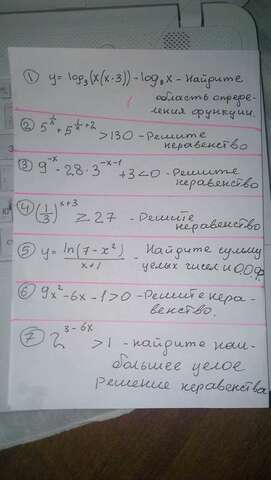 ① y = log₃(x(x-3)) - log₈x - Найдите
область опреде-
ления функции.
② 5^(1/x) + 5^(1/x + 2) > 130 - Решите
неравенство
③ 9^(-x) - 28·3^(-x-1) + 3 < 0 - Решите
неравенство
④ (1/3)^(x+3) ≥ 27 - Решите
неравенство
⑤ y = ln(7-x²)/(x+1) - Найдите сумму
целых чисел из О.О.Ф.
⑥ 9x² - 6x - 1 > 0 - Решите нера-
венство.
⑦ 2^(3-6x) > 1 - найдите наи-
большее целое
решение неравенства